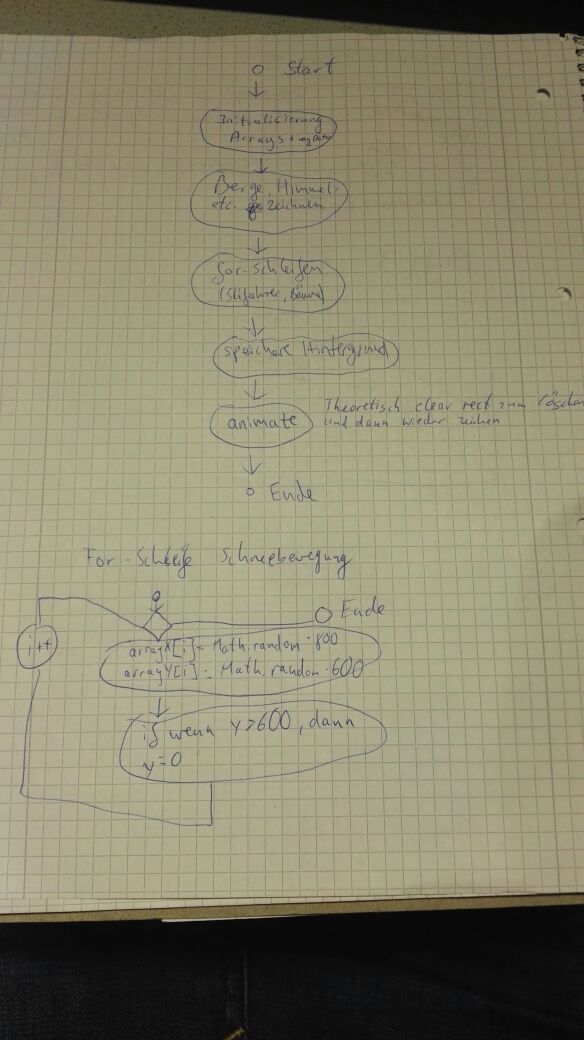 Start
Initialisierung
Arrays +
Berge, Himmel
etc. zeichnen
for-schleifen
(Skifahrer, Bäume)
speichere Hintergrund
animate
Theoretisch clear rect zum löschen
und dann wieder zeichen
Ende
For-Schleife Schneebewegung
Ende
i++
arrayX[i] = Math.random·800
arrayY[i] = Math.random·600
if wenn y>600, dann
y=0